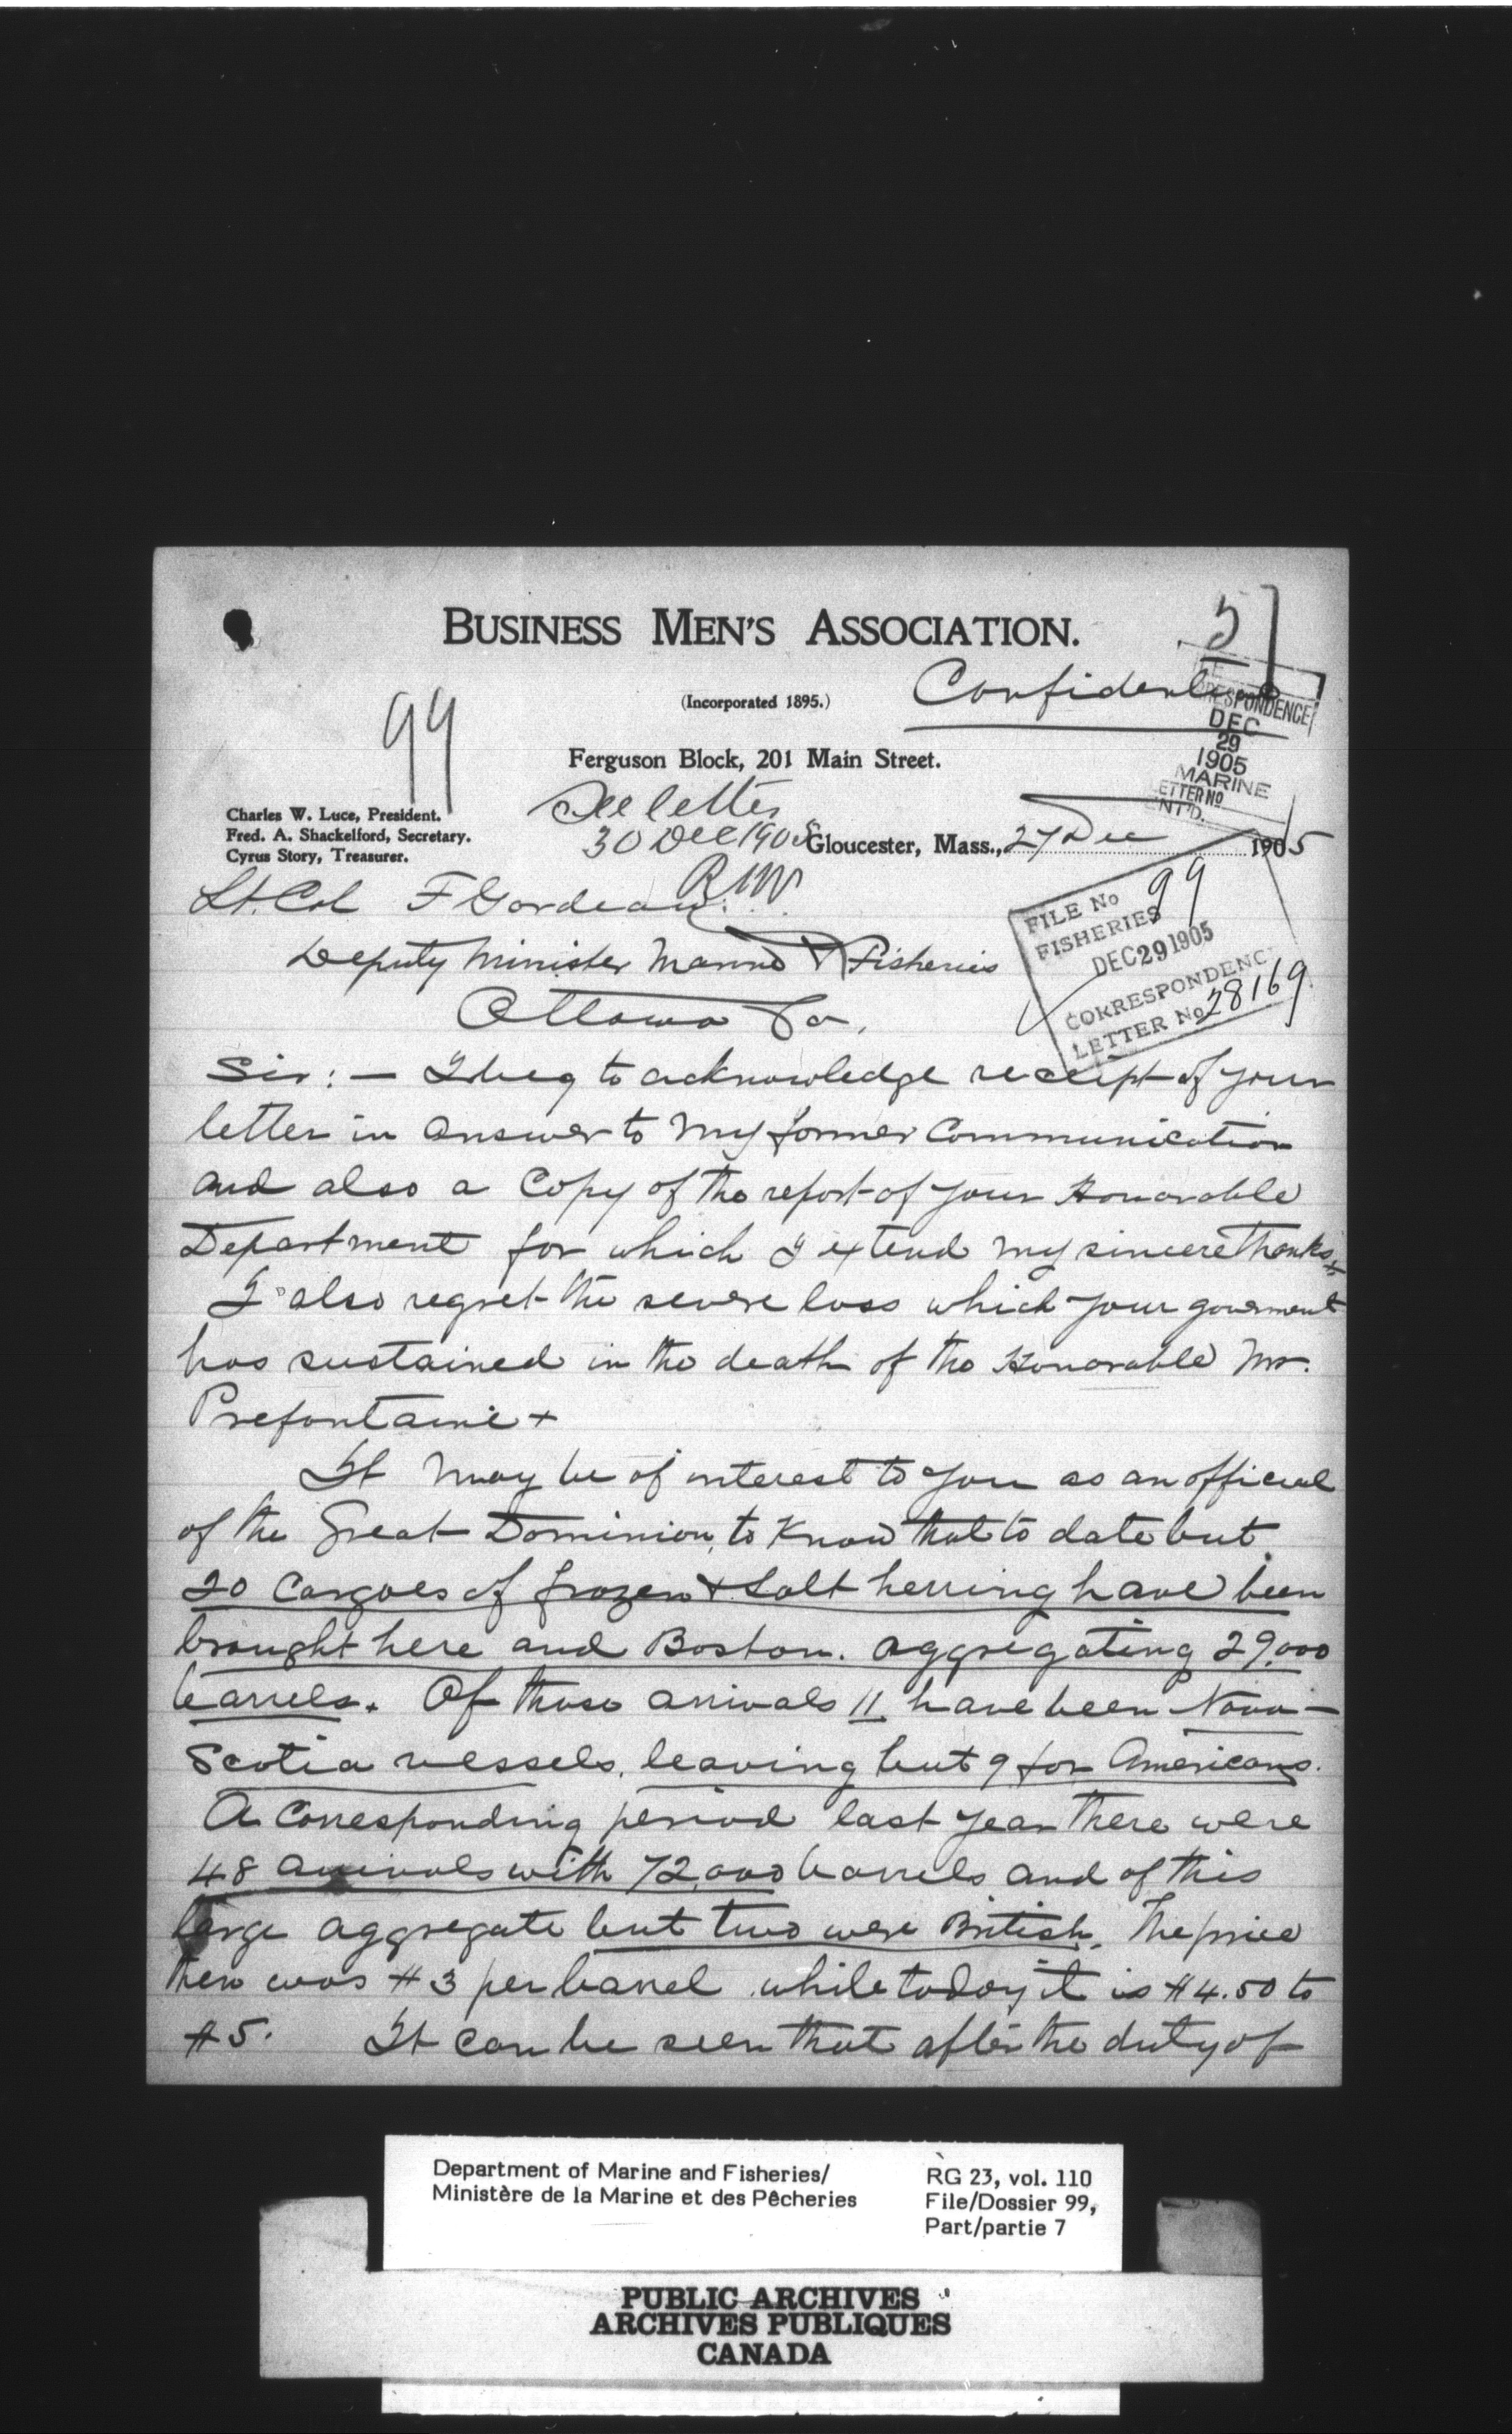 BUSINESS MEN'S ASSOCIATION.
5
Confidential
(Incorporated 1895.)
99
Ferguson Block, 201 Main Street.
CORRESPONDENCE
DEC
29
1905
MARINE
LETTER No
ANT'D.
Charles W. Luce, President.
Fred. A. Shackelford, Secretary.
Cyrus Story, Treasurer.
See letter
30 Dec 1905
Gloucester, Mass., 27 Dec 1905
Lt. Col F Gordeau.
Deputy Minister Marine & Fisheries
Ottawa
FILE No 99
FISHERIES
DEC 29 1905
CORRESPONDENCE
LETTER No 28169
Sir: — I beg to acknowledge receipt of your
letter in answer to my former Communication
and also a Copy of the report of your Honorable
Department for which I extend my sincere thanks
I also regret the severe loss which your government
has sustained in the death of the Honorable Mr.
Prefontaine +
It may be of interest to you as an official
of the Great Dominion, to know that to date but
20 Cargoes of frozen & salt herring have been
brought here and Boston. aggregating 29,000
barrels. Of those arrivals 11 have been Nova-
Scotia vessels, leaving but 9 for Americans.
A Corresponding period last year there were
48 arrivals with 72,000 barrels and of this
large aggregate but two were British. The price
then was $3 per barrel while today it is $4.50 to
$5. It can be seen that after the duty of
Department of Marine and Fisheries/
Ministère de la Marine et des Pêcheries
RG 23, vol. 110
File/Dossier 99,
Part/partie 7
PUBLIC ARCHIVES
ARCHIVES PUBLIQUES
CANADA